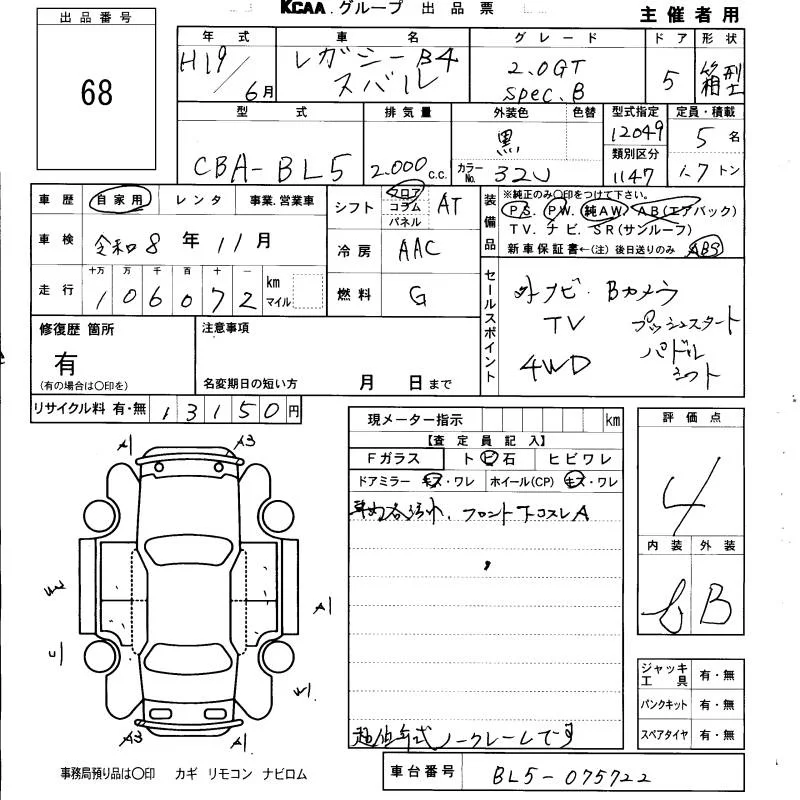 KCAA.グループ 出品票
主催者用
出品番号
68
年式 車名 グレード ドア 形状
H19/6月 レガシーB4 スバル 2.0GT spec.B 5 箱型
型式 排気量 外装色 色替 型式指定 定員・積載
CBA-BL5 2.000c.c. 黒 カラーNo. 32J 12049 5名
類別区分
1147 1.7トン
車歴 自家用 レンタ 事業.営業車
シフト フロア コラム パネル AT
装備品
※純正のみ〇印をつけて下さい。
P.S. P.W. 純AW. AB(エアバック)
T.V. ナビ. S.R(サンルーフ)
新車保証書←(注) 後日送りのみ ABS
車検 令和8年11月
冷房 AAC
走行 十万 万 千 百 十 一 km マイル
106072
燃料 G
セールスポイント
外ナビ. Bカメラ
TV プッシュスタート
4WD パドルシフト
修復歴 箇所
有
(有の場合は〇印を)
注意事項
名変期日の短い方 月 日まで
リサイクル料 有・無 13150円
現メーター指示 km
【査定員記入】
Fガラス トビ石 ヒビワレ
ドアミラー キズ・ワレ ホイール(CP) キズ・ワレ
フロント下コスレA
ノークレームです
評価点
4
内装 外装
B
ジャッキ工具 有・無
パンクキット 有・無
スペアタイヤ 有・無
A1 A3
A1
A3 A1
W1
事務局預り品は〇印 カギ リモコン ナビロム
車台番号 BL5-075722